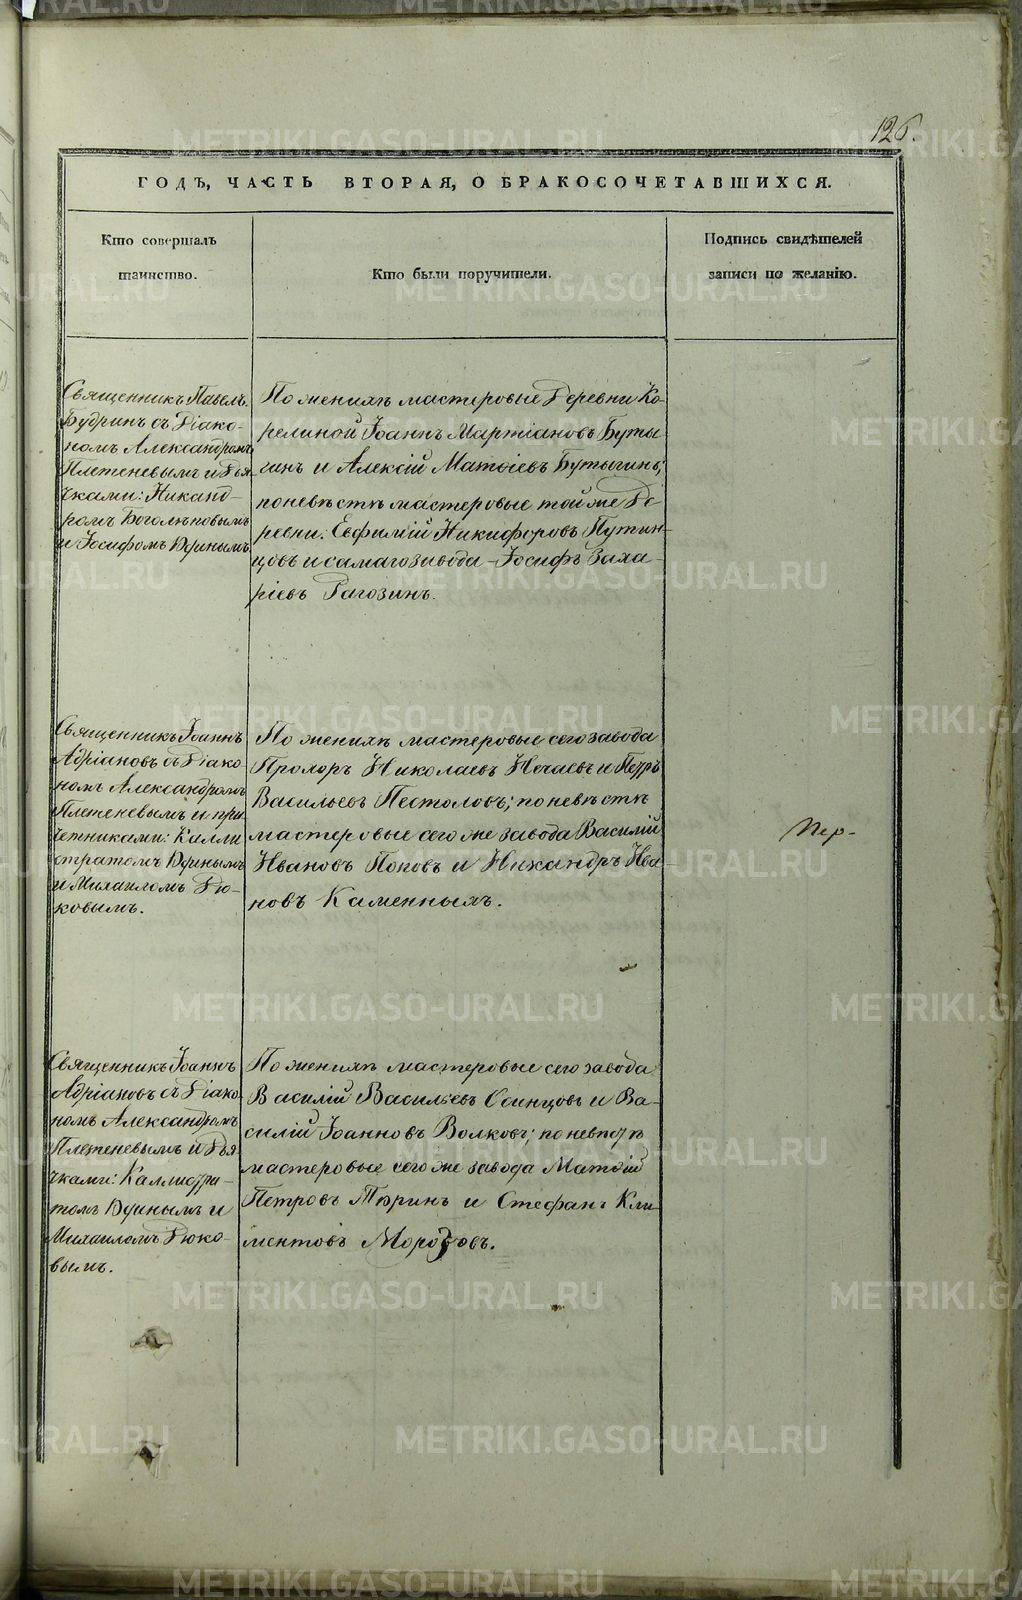 126.
ГОДЪ, ЧАСТЬ ВТОРАЯ, О БРАКОСОЧЕТАВШИХСЯ.
Кто совершалъ
таинство.
Кто были поручители.
Подпись свидѣтелей
записи по желанію.
Священникъ Павелъ
Будринъ съ Діако-
номъ Александромъ
Плетеневымъ и Дья
чками: Никанд-
ромъ Боголѣповымъ
и Іосифомъ
По женихѣ мастеровые Деревни Ко-
релиной Іоаннъ Мартіановъ Буты
гинъ и Алексій Матѳіевъ Бутыгинъ;
по невѣстѣ мастеровые той же Де
ревни: Евфимій Никифоровъ Путин-
цовъ и самаго завода – Іосифъ Заха-
ріевъ Рагозинъ.
Священникъ Іоаннъ
Адріановъ съ Діако
номъ Александромъ
Плетеневымъ и при
четниками: Калли
стратомъ
и Михаиломъ Дю-
ковымъ.
По женихѣ мастеровые сего завода
Прохоръ Николаевъ Нечаевъ и Петръ
Васильевъ Пестоловъ; по невѣстѣ
мастеровые сего же завода Василій
Ивановъ Поповъ и Никандръ Ива-
новъ Каменныхъ.
Пер-
Священникъ Іоаннъ
Адріановъ съ Діако
номъ Александромъ
Плетеневымъ и Дья
чками: Каллистра-
томъ и
Михаиломъ Дюко-
вымъ.
По женихѣ мастеровые сего завода
Василій Васильевъ Осинцовъ и Ва-
силій Іоанновъ Волковъ; по невѣстѣ
мастеровые сего же завода Матѳій
Петровъ Тюринъ и Стефанъ Кли
ментовъ Морозовъ.
METRIKI.GASO-URAL.RU